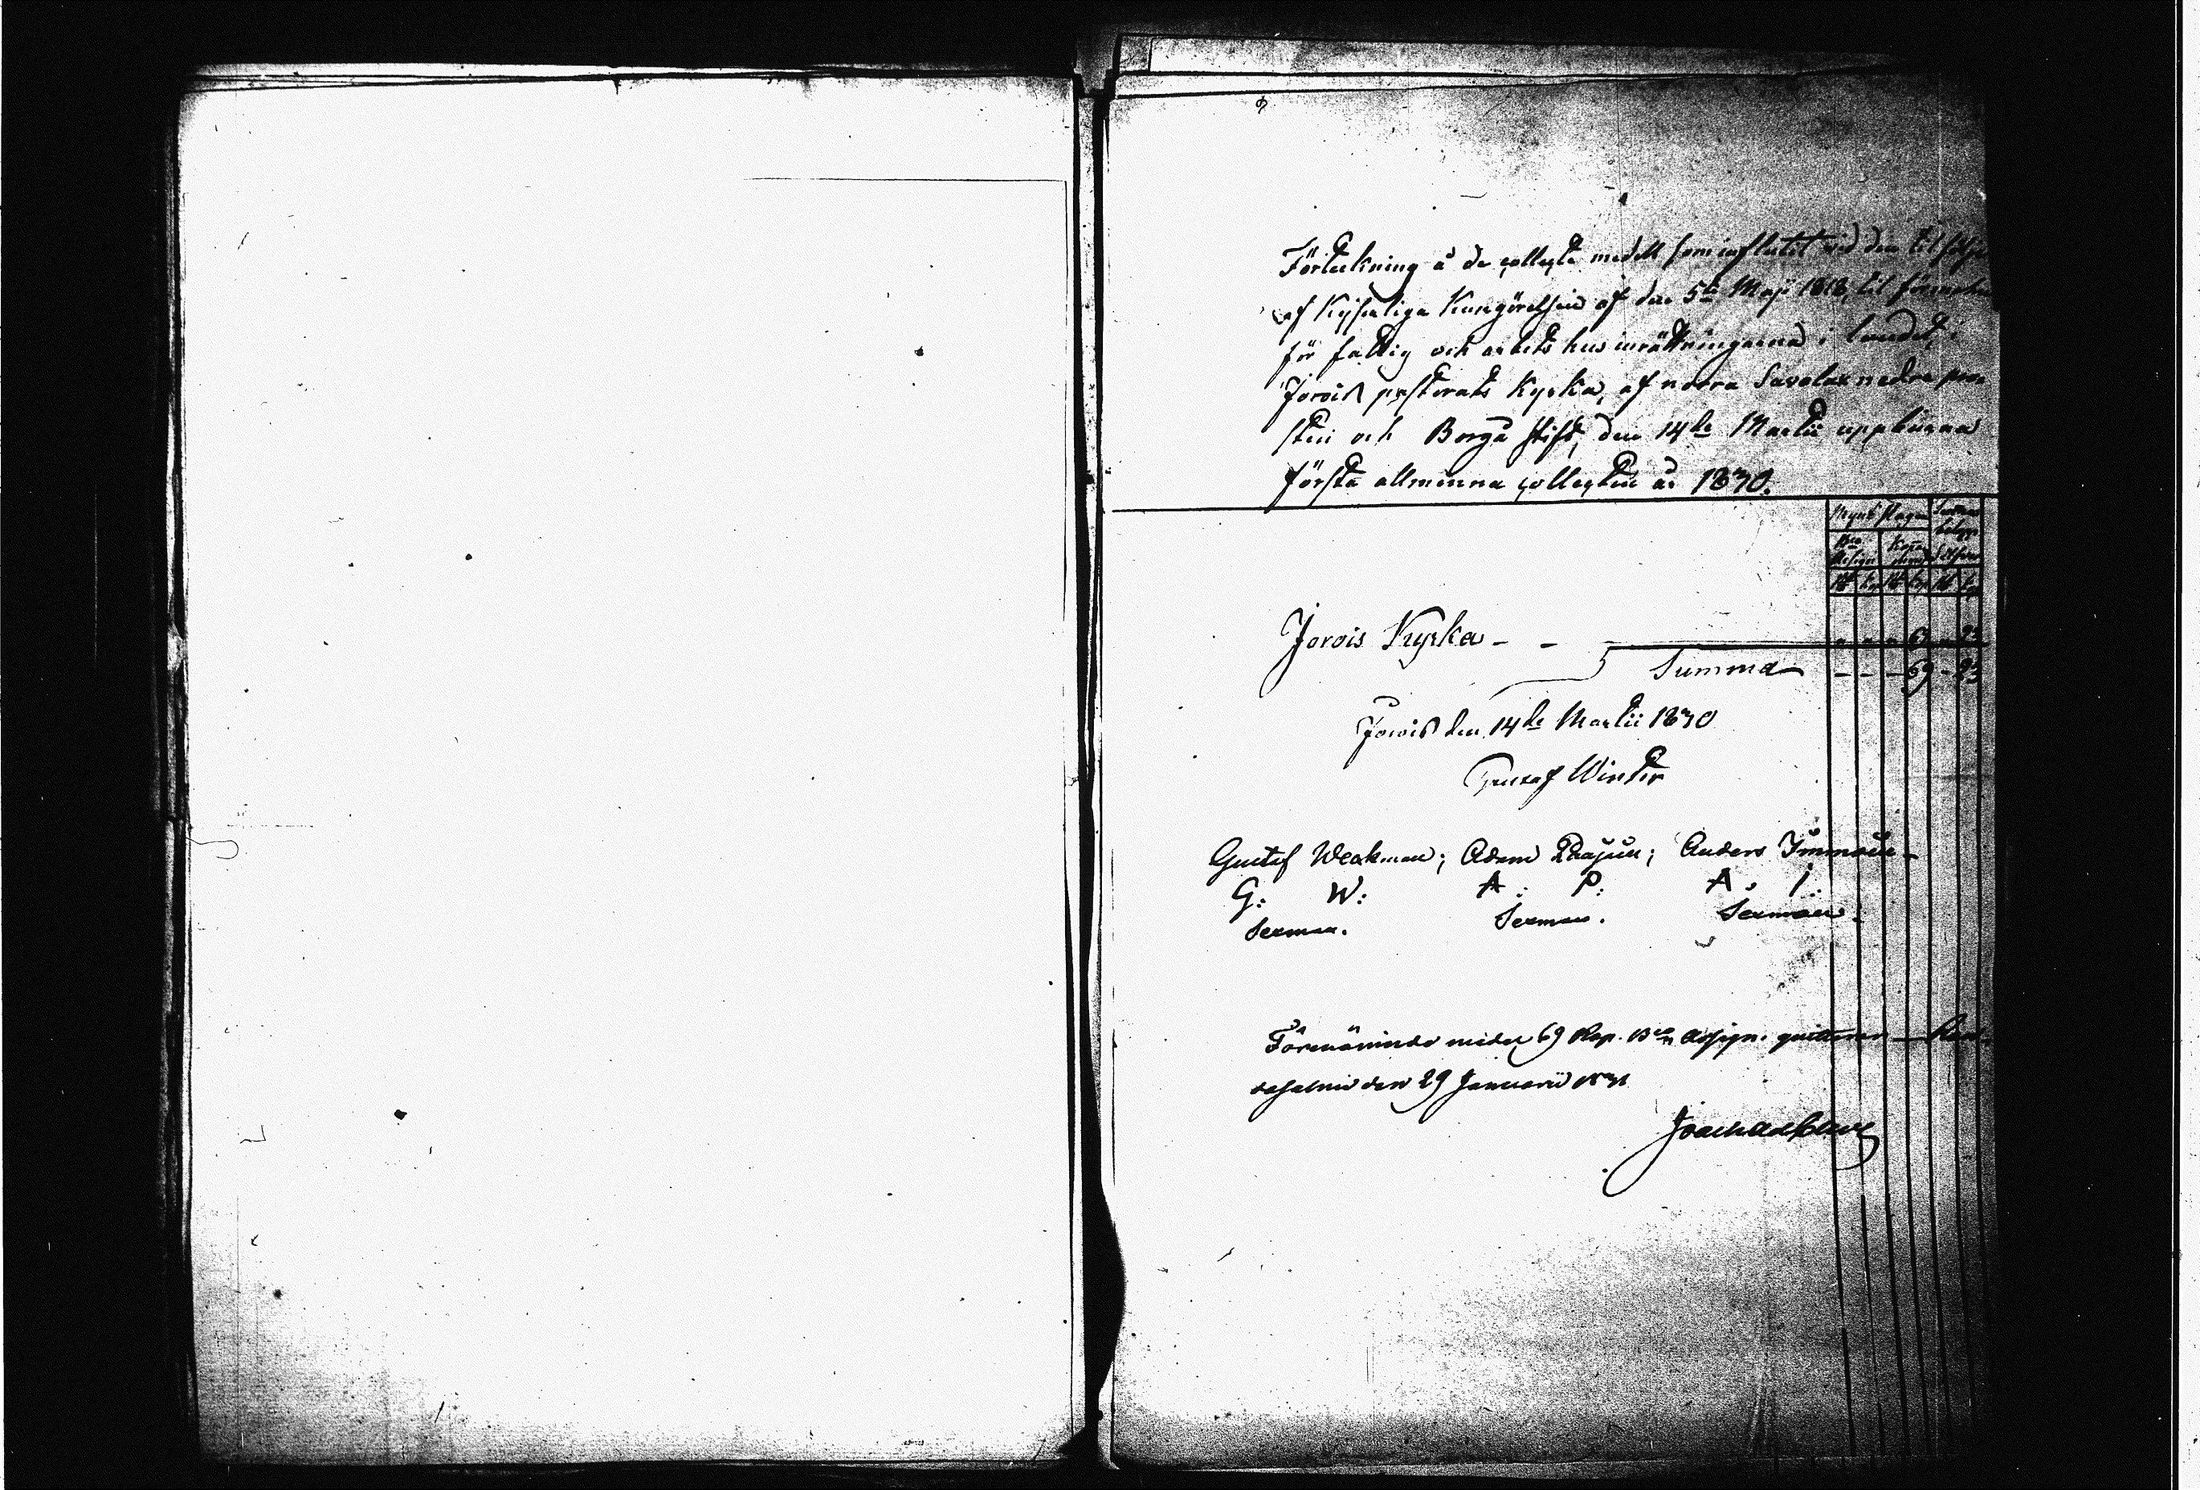 Förteckning å de collecte medel som influtit vid den til följe
af Kejserliga Kungörelsen af den 5te Maji 1818, til förmohn
för fattig och arbets hus inrättningarna i landet, i
Jorois pastorats Kyrka, af norra Savolax nedre pro-
steri och Borgå stift, den 14de Martii uppburna
första allmänna collecten år 1830.
Mynt slagen Summa
Bco Assign Koppar Silfver
Jorois Kyrka - - " " " 69 " 23
Summa - - - 69 - 23
Jorois den 14de Martii 1830
Gustaf Winter
Gustaf Weckman; Adam Paajain; Anders Immoin
G: W: A: P: A: I:
Sexman. Sexman. Sexman.
Förenämnde medel 69 Kop. Bco Assign. quitteras
den 29 Januarii 1831